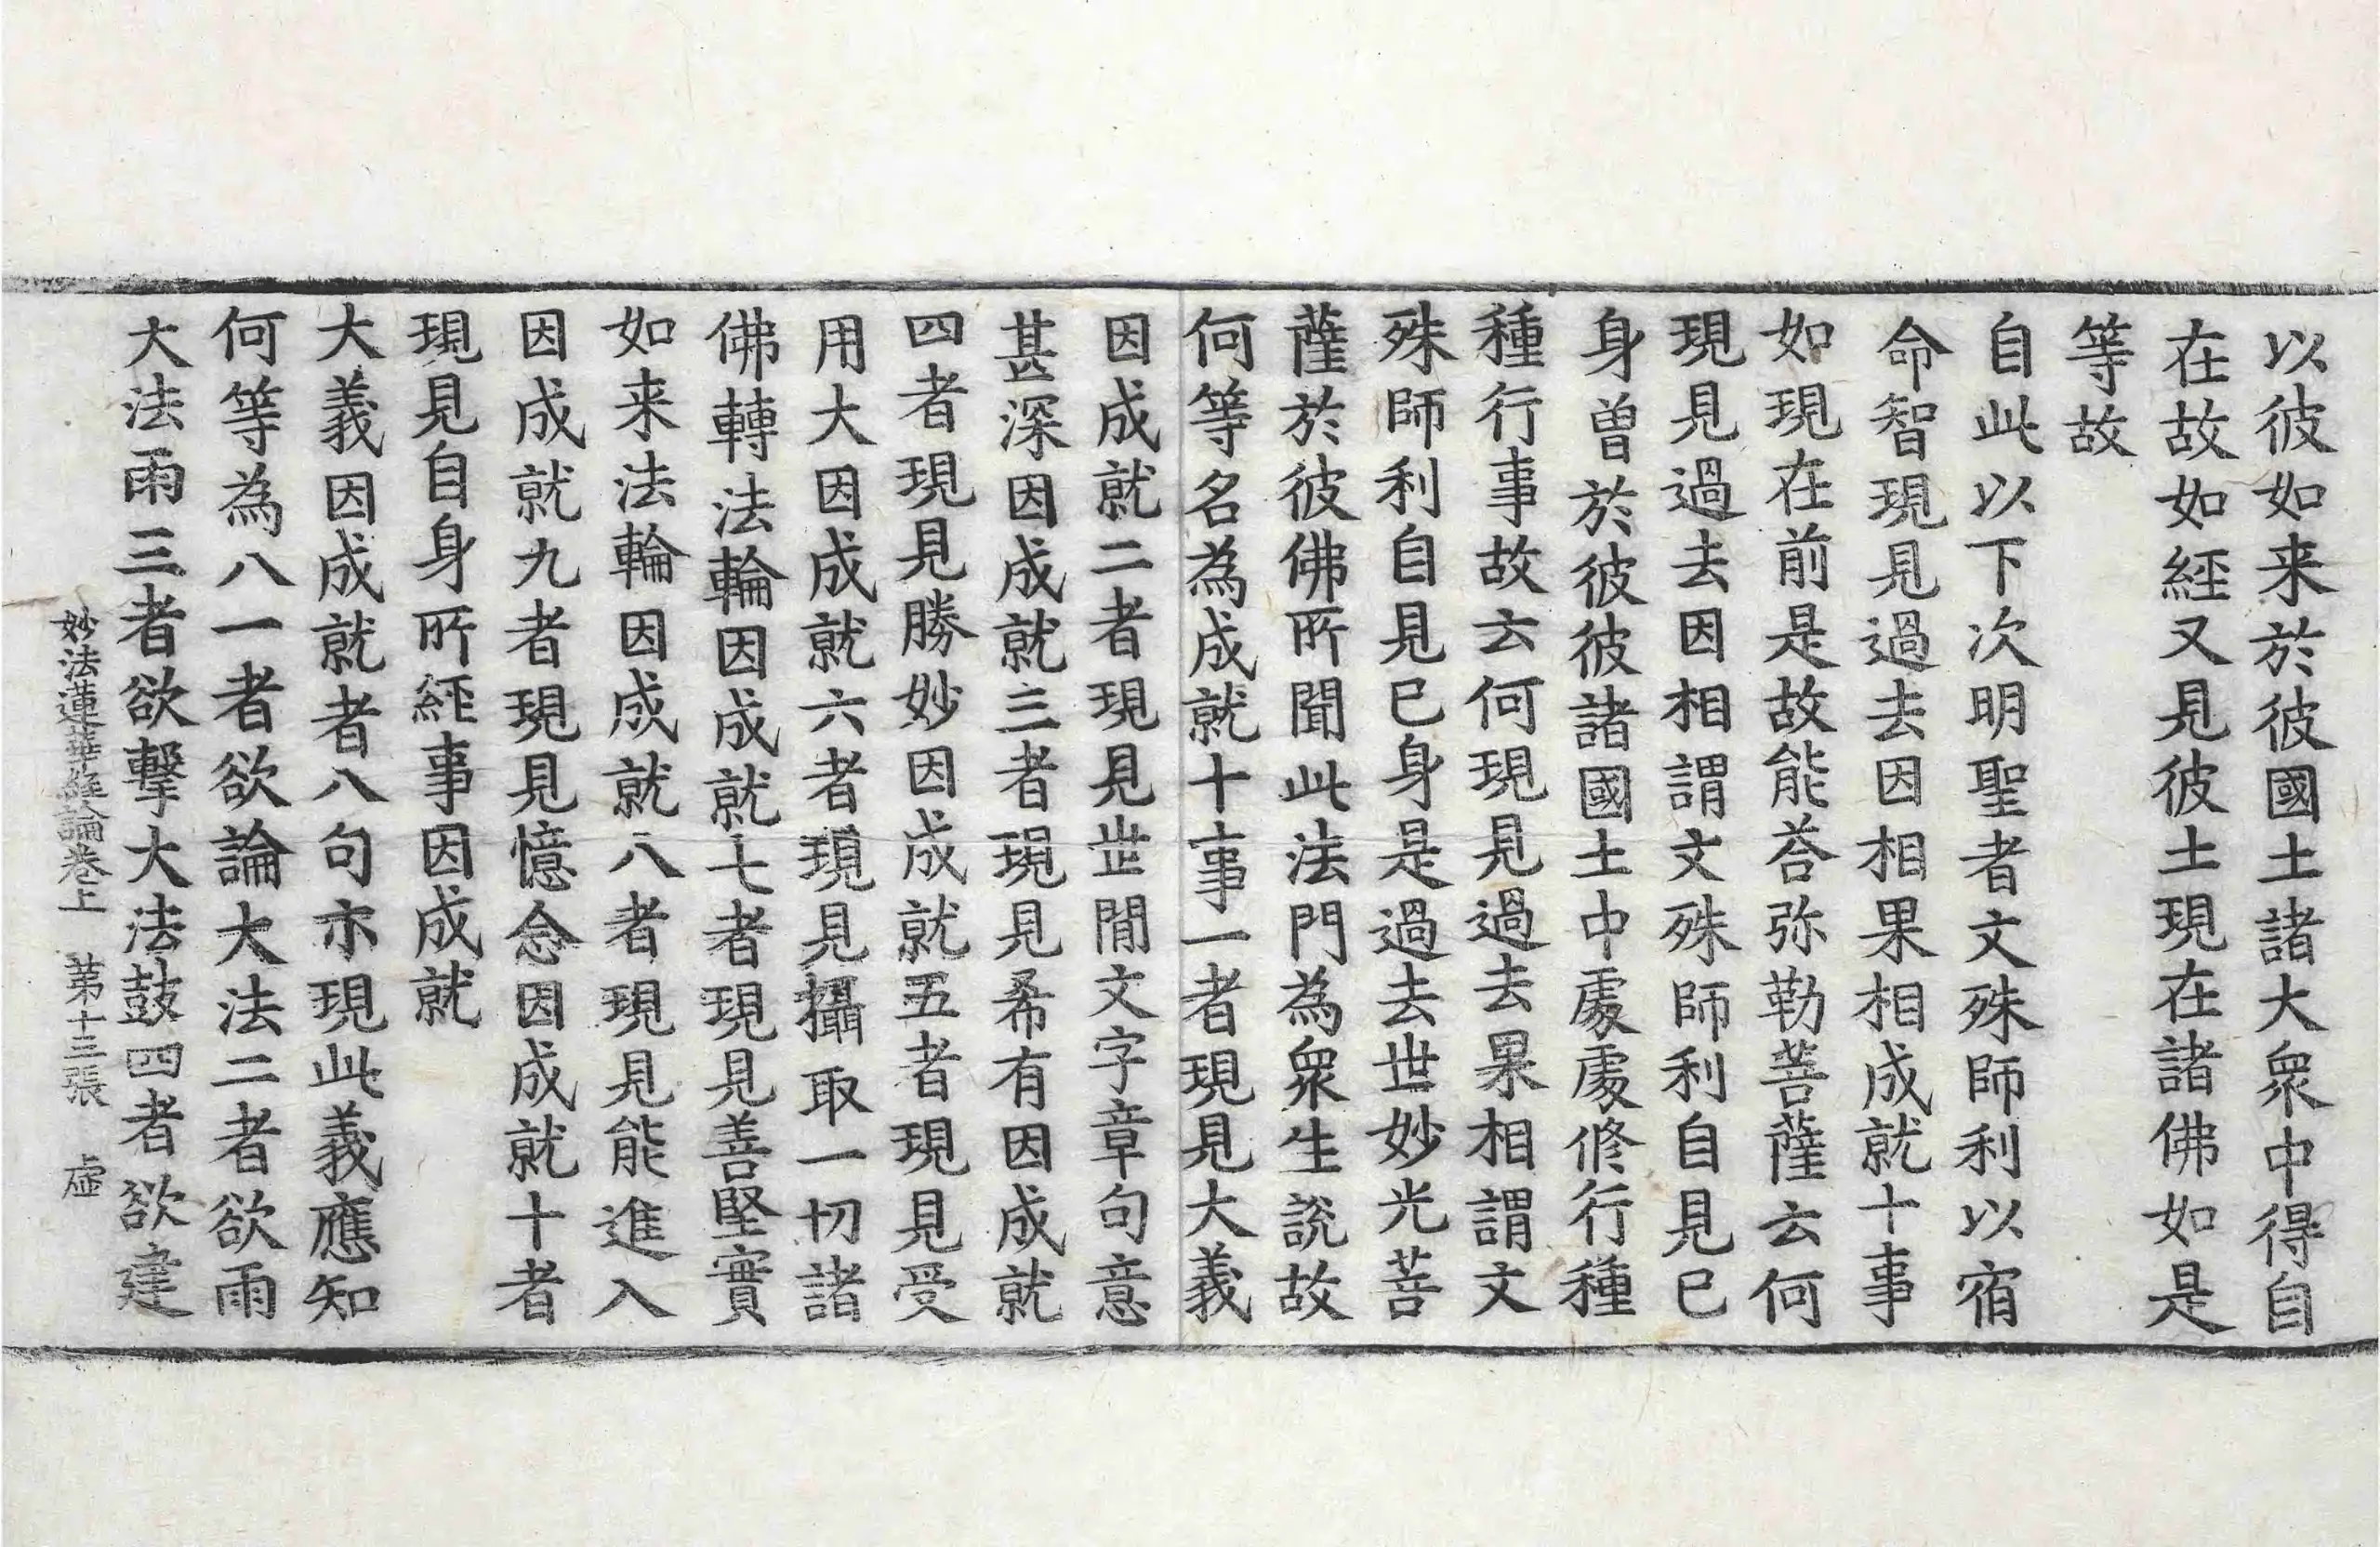 以彼如来於彼國土諸大衆中得自
在故如經又見彼土現在諸佛如是
等故
自此以下次明聖者文殊師利以宿
命智現見過去因相果相成就十事
如現在前是故能荅弥勒菩薩云何
現見過去因相謂文殊師利自見已
身曽於彼彼諸國土中處處修行種
種行事故云何現見過去果相謂文
殊師利自見已身是過去世妙光菩
薩於彼佛所聞此法門為衆生說故
何等名為成就十事一者現見大義
因成就二者現見世閒文字章句意
甚深因成就三者現見希有因成就
四者現見勝妙因成就五者現見受
用大因成就六者現見攝取一切諸
佛轉法輪因成就七者現見善堅實
如来法輪因成就八者現見能進入
因成就九者現見憶念因成就十者
現見自身所經事因成就
大義因成就者八句亦現此義應知
何等為八一者欲論大法二者欲雨
大法雨三者欲擊大法鼓四者欲建
妙法蓮華經論卷上 第十三張 虛